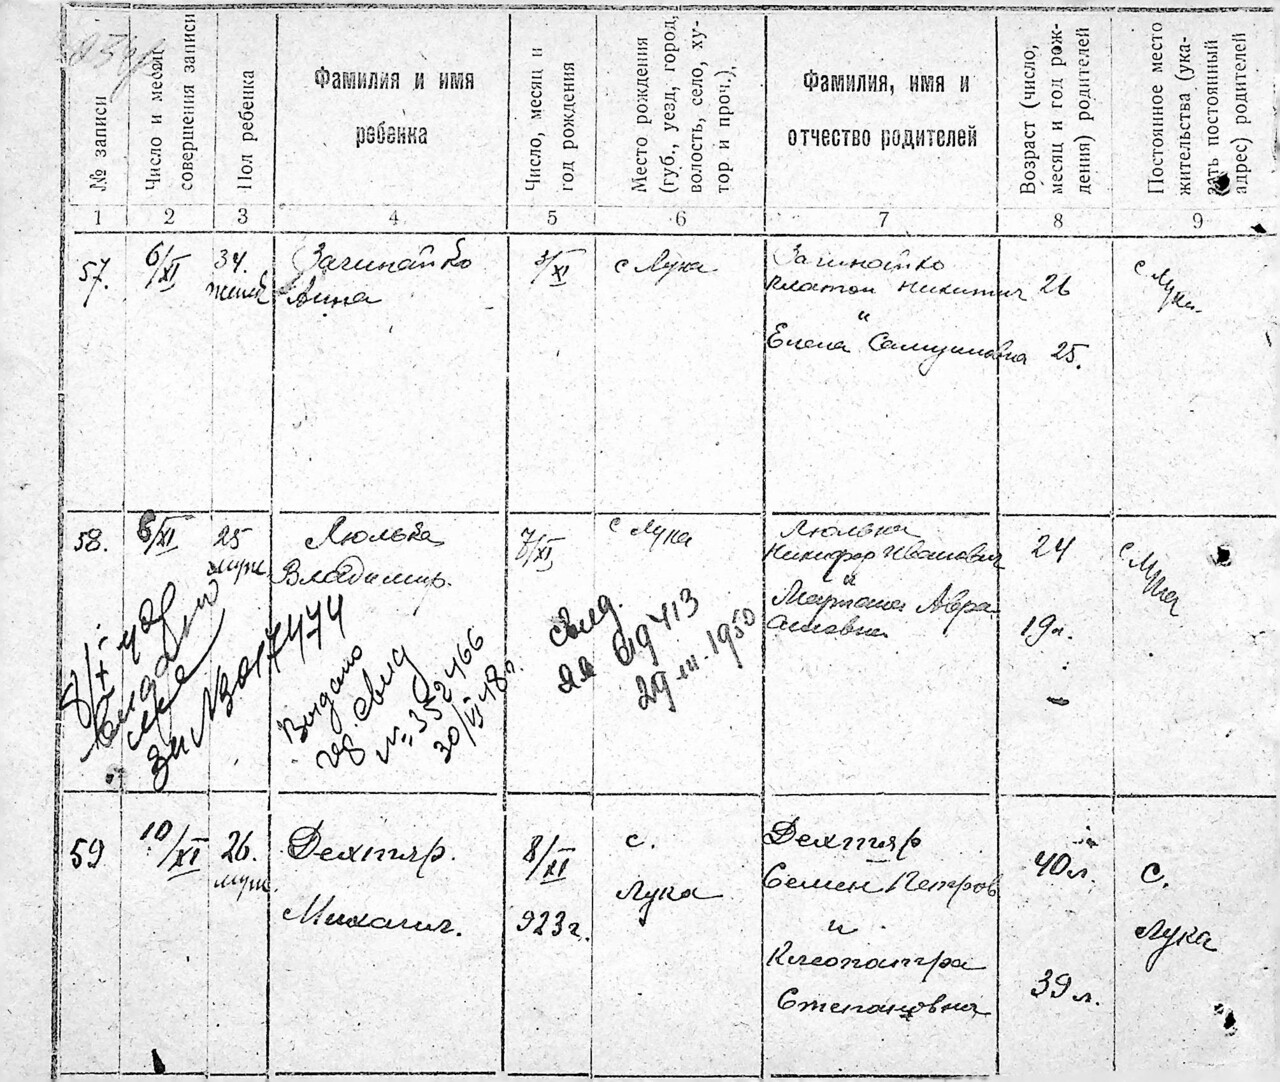 № записи
Число и месяц
совершения записи
Пол ребенка
Фамилия и имя
ребенка
Число, месяц и
год рождения
Место рождения
(губ., уезд, город,
волость, село, ху-
тор и проч.),
Фамилия, имя и
отчество родителей
Возраст (число,
месяц и год рож-
дения) родителей
Постоянное место
жительства (ука-
зать постоянный
адрес) родителей
1 2 3 4 5 6 7 8 9
57. 6/XI 34. женск
Зачинайко
Анна
3/XI
с Лука
Зачинайко
Платон Никитич 26
и
Елена Самуиловна 25.
с Лука.
58. 8/XI 25 муж.
Люлька
Владимир.
7/XI
с Лука
Люлька
Никифор Иванович 24
и
Мартоха Авра
амовна 19л.
с Лука
за № 3017474
Выдано
св. свид
№: 352466
30/VI 48 г.
свид.
ЯЯ 019713
29 III. 1950
59 10/XI 26. муж.
Дехтяр.
Михаил.
8/XI
923 г.
с.
Лука
Дехтяр
Семен Петров 40 л.
и
Клеопатра
Степановна 39 л.
с.
Лука